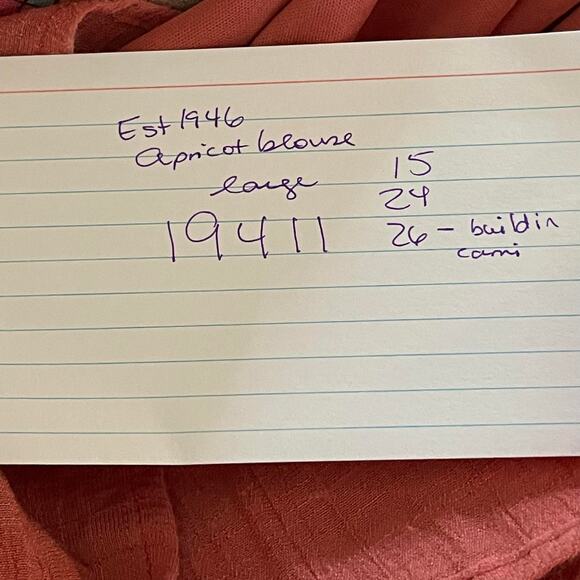 Est 1946
Apricot blouse
large
19411
15
24
26 - buildin
cami